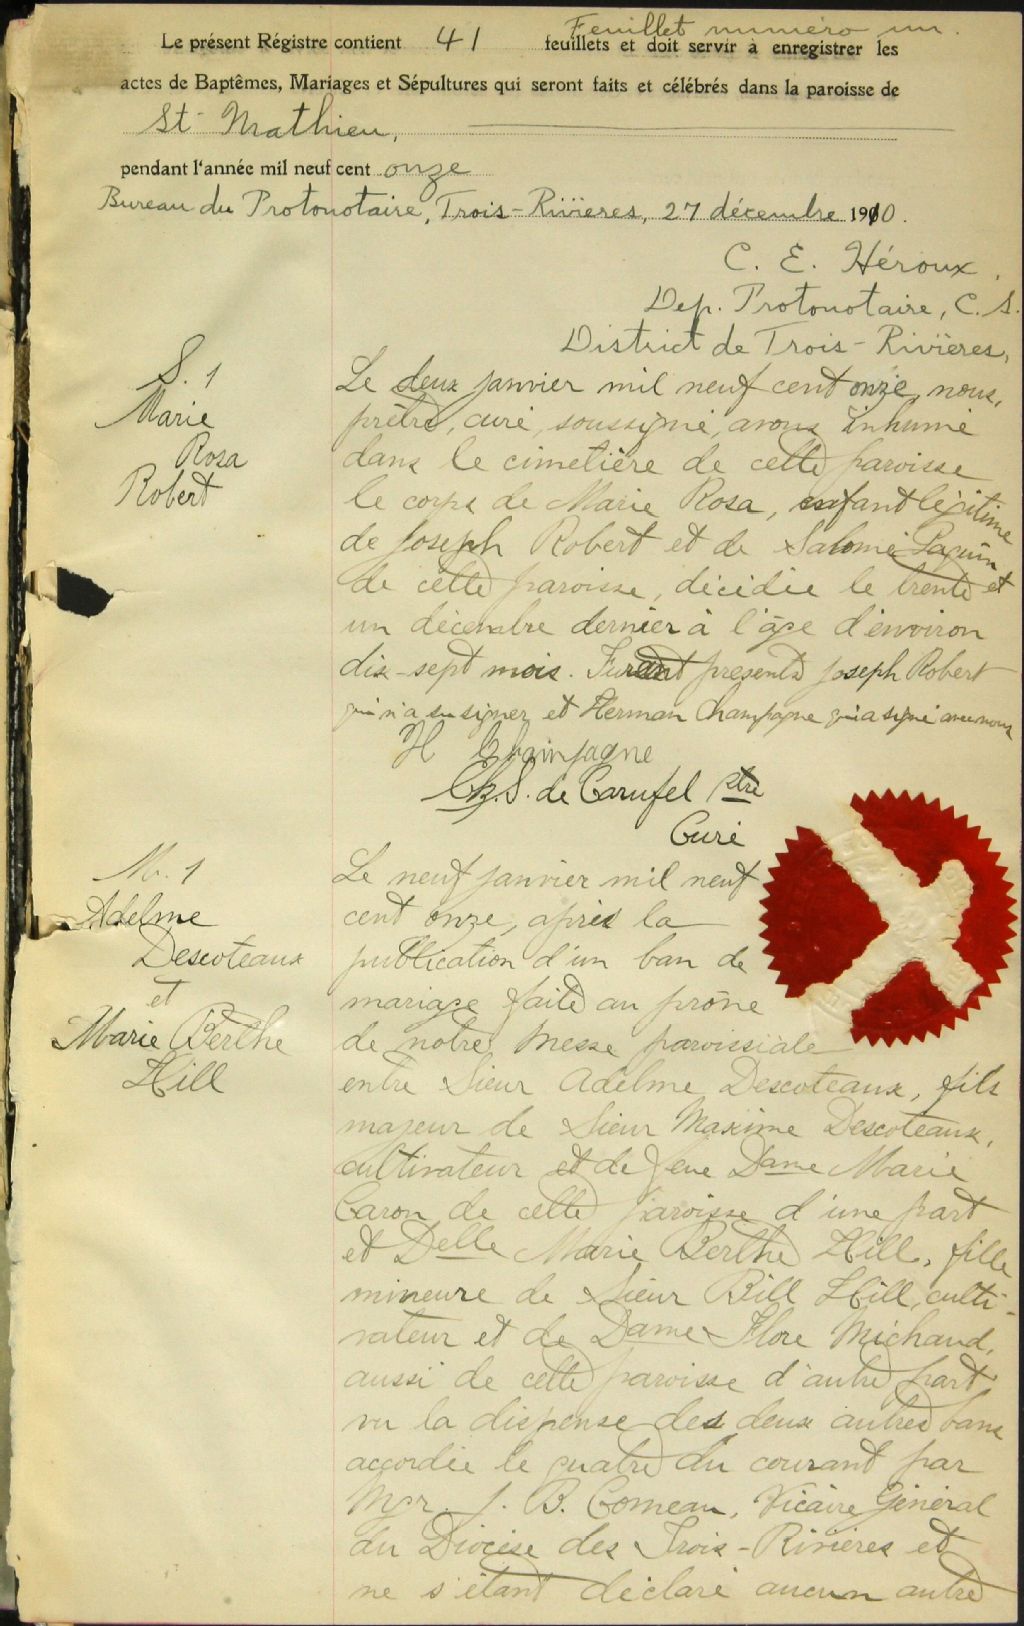 Feuillet numéro un.
Le présent Régistre contient 41 feuillets et doit servir à enregistrer les
actes de Baptêmes, Mariages et Sépultures qui seront faits et célébrés dans la paroisse de
St. Mathieu,
pendant l'année mil neuf cent onze
Bureau du Protonotaire, Trois-Rivières, 27 décembre 1910.
C. E. Héroux,
Dep. Protonotaire, C. S.
District de Trois-Rivières,
S. 1
Marie
Rosa
Robert
Le deux janvier mil neuf cent onze, nous,
prêtre, curé, soussigné, avons inhumé
dans le cimetière de cette paroisse
le corps de Marie Rosa, enfant légitime
de Joseph Robert et de Salomé Paquin
de cette paroisse, décédée le trente et
un décembre dernier à l'âge d'environ
dix-sept mois. Furent présents Joseph Robert
qui n'a su signer et Herman Champagne qui a signé avec nous
H Champagne
Ch. S. de Carufel ptre
Curé
M. 1
Adelme
Descoteaux
et
Marie Berthe
Hill
Le neuf janvier mil neuf
cent onze, après la
publication d'un ban de
mariage faite au prône
de notre Messe paroissiale
entre Sieur Adelme Descoteaux, fils
majeur de Sieur Maxime Descoteaux,
cultivateur et de feue Dame Marie
Caron de cette paroisse d'une part
et Delle Marie Berthe Hill, fille
mineure de Sieur Bill Hill, culti-
vateur et de Dame Flore Michaud,
aussi de cette paroisse d'autre part,
vu la dispense des deux autres bans
accordée le quatre du courant par
Mgr. J. B. Comeau, Vicaire Général
du Diocèse des Trois-Rivières et
ne s'étant déclaré aucun autre